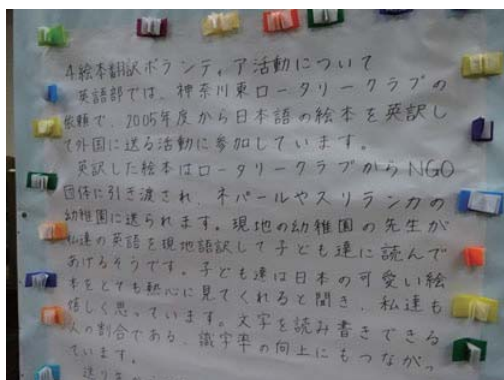 4.絵本翻訳ボランティア活動について
英語部では、神奈川東ロータリークラブの
依頼で、2005年度から日本語の絵本を英訳し
て外国に送る活動に参加しています。
英訳した絵本はロータリークラブからNGO
団体に引き渡され、ネパールやスリランカの
幼稚園に送られます。現地の幼稚園の先生が
私達の英語を現地語訳して子ども達に読んで
あげるそうです。子ども達は日本の可愛い絵
本をとても熱心に見てくれると聞き、私達も
嬉しく思っています。文字を読み書きできる
人の割合である、識字率の向上にもつながっ
ています。